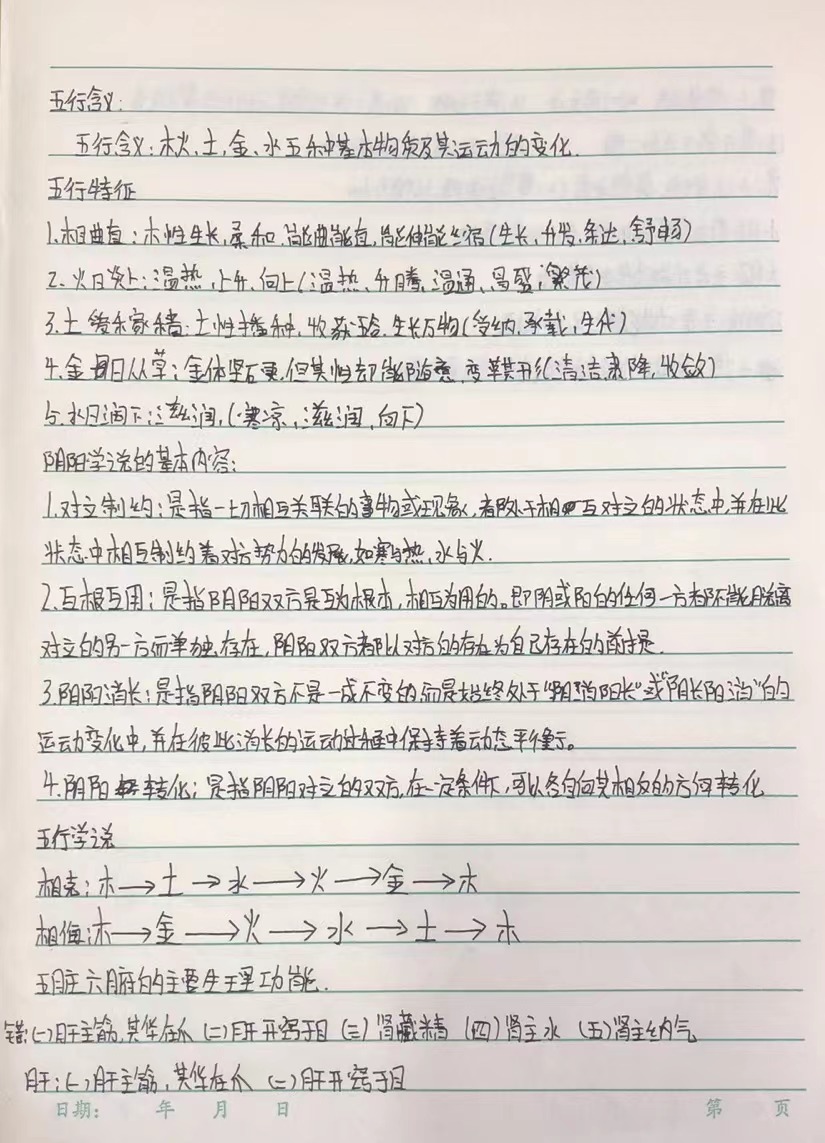 五行含义:
五行含义:木火、土、金、水五种基本物质及其运动的变化.
五行特征
1.木曰曲直:木性生长,柔和,能曲能直,能伸能缩(生长,升发,条达,舒畅)
2.火曰炎上:温热,上升,向上(温热、升腾,温通、昌盛,繁茂)
3.土爰稼穑:土性播种,收获,生长万物(受纳,承载,生化)
4.金曰从革:金体坚硬,但其性却能随意变革其形(清洁,肃降,收敛)
5.水曰润下:滋润,(寒凉,滋润,向下)
阴阳学说的基本内容:
1.对立制约:是指一切相互关联的事物或现象,都处于相互对立的状态中,并在此
状态中相互制约着对方势力的发展,如寒与热,水与火.
2.互根互用:是指阴阳双方是互为根本,相互为用的。即阴或阳的任何一方都不能脱离
对立的另一方而单独存在,阴阳双方都以对方的存在为自己存在的前提.
3.阴阳消长:是指阴阳双方不是一成不变的而是始终处于“阴消阳长”或“阴长阳消”的
运动变化中,并在彼此消长的运动过程中保持着动态平衡。
4.阴阳转化:是指阴阳对立的双方,在一定条件下,可以各自向其相反的方向转化
五行学说
相克:木→土→水→火→金→木
相侮:木→金→火→水→土→木
五脏六腑的主要生理功能.
错:(一)肝主筋,其华在爪 (二)肝开窍于目 (三)肾藏精 (四)肾主水 (五)肾主纳气
肝:(一)肝主筋,其华在爪 (二)肝开窍于目
日期: 年 月 日 第 页